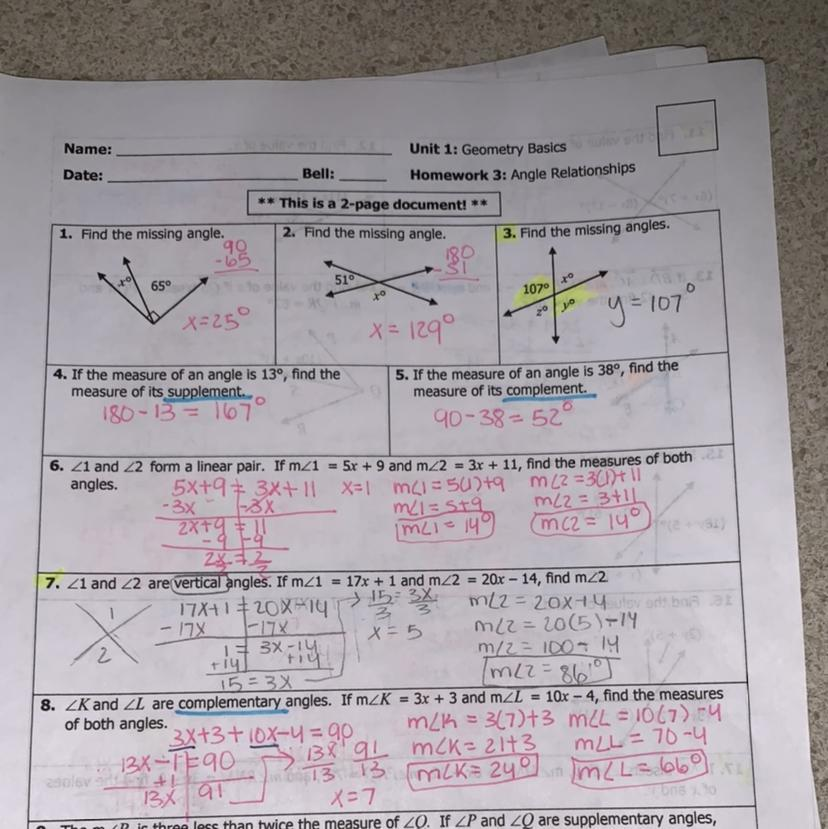 Name:
Unit 1: Geometry Basics
Date:
Bell:
Homework 3: Angle Relationships
** This is a 2-page document! **
1. Find the missing angle.
90
-65
x°
65°
x=25°
2. Find the missing angle.
180
-51
51°
x°
x = 129°
3. Find the missing angles.
107°
x°
z°
y°
y = 107°
4. If the measure of an angle is 13°, find the
measure of its supplement.
180-13 = 167°
5. If the measure of an angle is 38°, find the
measure of its complement.
90-38 = 52°
6. ∠1 and ∠2 form a linear pair. If m∠1 = 5x + 9 and m∠2 = 3x + 11, find the measures of both
angles.
5x+9 = 3x+11
-3x -3x
2x+9 = 11
-9 -9
2x = 2
x=1
m∠1=5(1)+9
m∠1=5+9
m∠1=14°
m∠2=3(1)+11
m∠2=3+11
m∠2=14°
7. ∠1 and ∠2 are vertical angles. If m∠1 = 17x + 1 and m∠2 = 20x – 14, find m∠2
1
2
17x+1 = 20x-14
-17x -17x
1 = 3x-14
+14 +14
15 = 3x
15 = 3x
3 3
x = 5
m∠2 = 20x-14
m∠2 = 20(5)-14
m∠2 = 100-14
m∠2 = 86°
8. ∠K and ∠L are complementary angles. If m∠K = 3x + 3 and m∠L = 10x – 4, find the measures
of both angles.
3x+3+10x-4=90
13x-1=90
+1
13x 91
13x 91
13 13
x=7
m∠K = 3(7)+3
m∠K= 21+3
m∠K= 24°
m∠L = 10(7)-4
m∠L = 70-4
m∠L = 66°
is three less than twice the measure of ∠Q. If ∠P and ∠Q are supplementary angles,